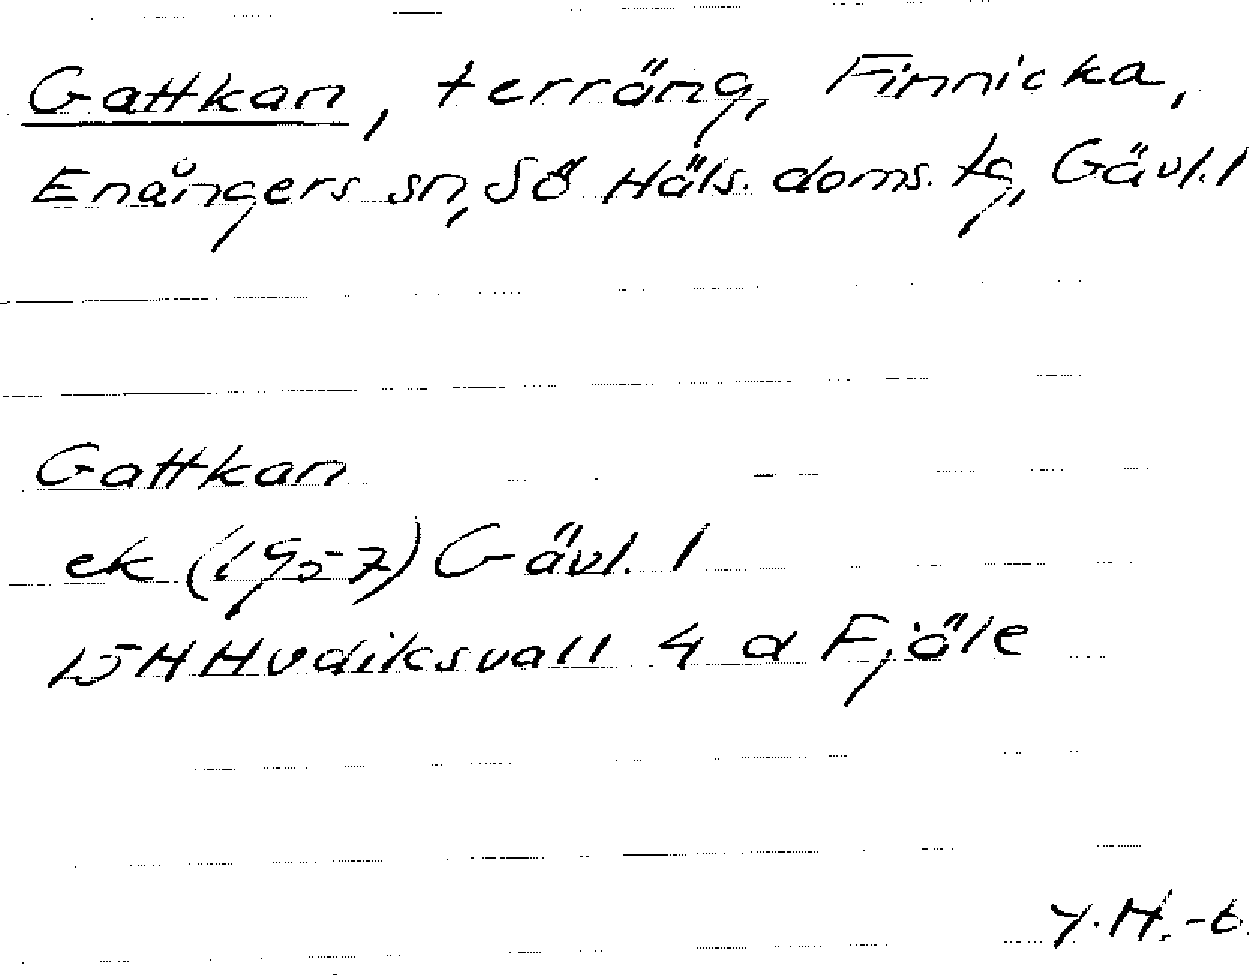 Gattkan, terräng, Finnicka,
Enångers sn, Sö Häls. doms. tg, Gävl. l
Gattkan
ek (1957) Gävl. l
15H Hudiksvall 4 a Fjäle
Y.H.-b.